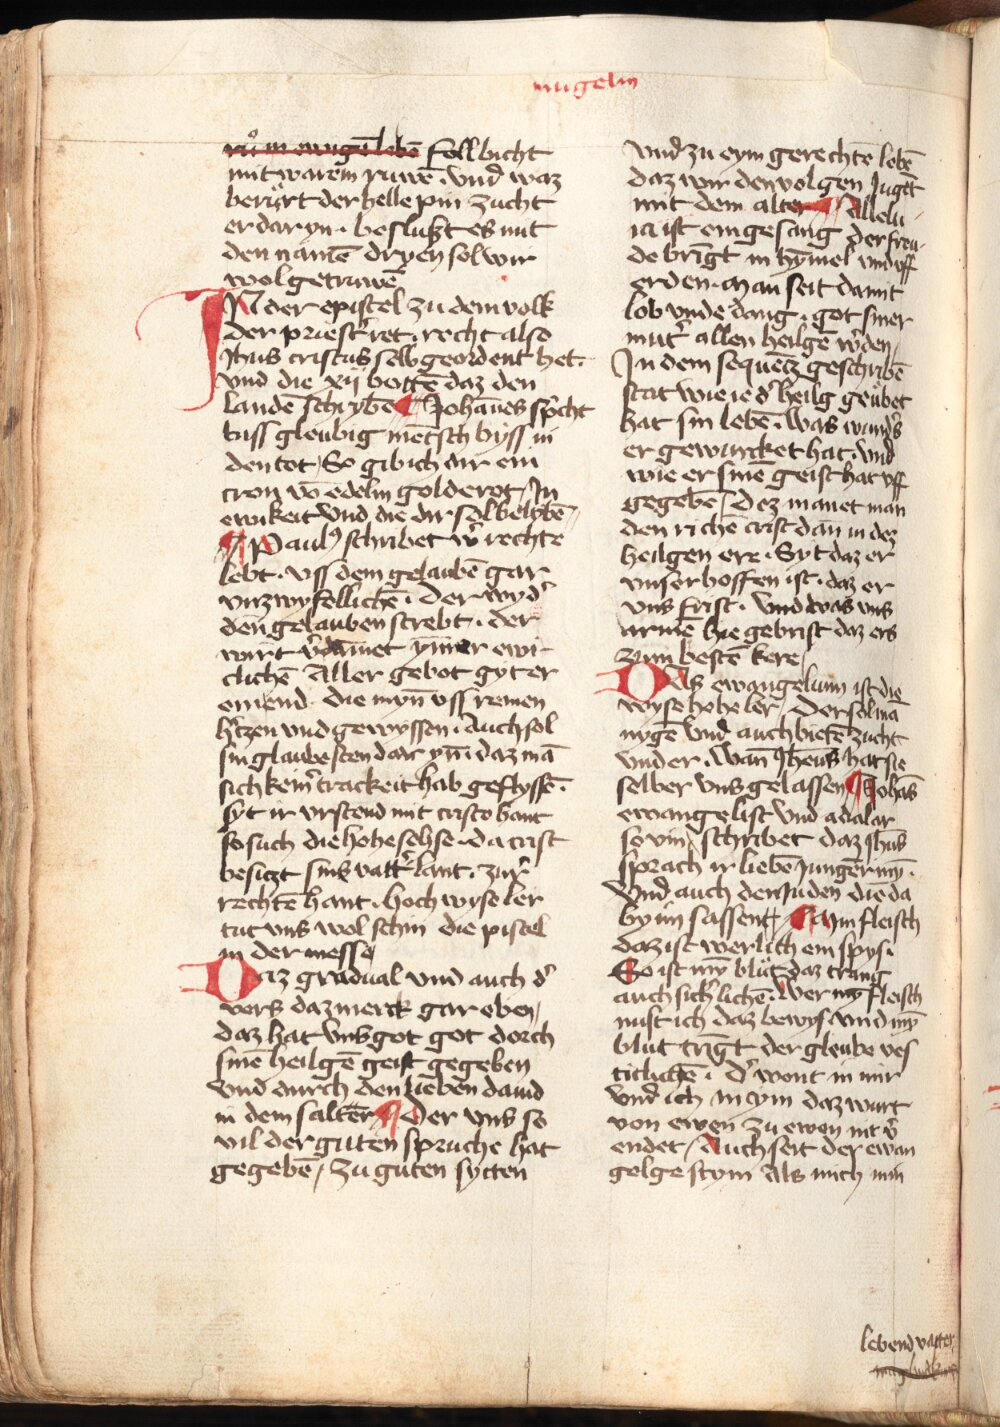 mugelin
rů in ewigē lebē follbicht
mit warem ruwē . vnd waz
berůrt der helle pin zucht
er daryn . beslußt es mit
den namē dryen sol wir
wol getruwē
IN der epistel zu dem volk
der priest̉ ret . recht also
Jhūs cristus selb geordent het .
vnd die xij bottē daz den
landē schrybē ¶ Johānes sp̉cht
biss gleubig mētsch byss in
den tot / So gib ich dir ein
cron vō edelm golde rot / In
ewikeit vnd die dir sol belybē
¶ Paulꝰ schribet w̉ rechte
lebt . vss dem gelaubē gar
vnzwyfellichē . der wyd̉
den gelauben strebt . der
wirt v̉dāmet ym̄er ewi-
clichē Aller gebot gyter
em end . die myn̄ vss reinen
h̉tzen vnd gewyssen . Auch sol
sin glaube sten dar yn̄ . daz mā
sich keinr̉ trackeit hab geflyssē .
syt ir vrstend mit cristo hant
so such die hohe sehse . da crist
besiczt sins vatt̉ lant . zur̉
rechtē hant . hoch wyse ler
tut vns wol schin die pistel
in der messe
Daz gradual vnd auch d̉
vers daz merck gar eben /
daz hat vns got got dorch
sinē heilgē geist gegeben
vnd durch den lieben dauid
in dem salter ¶ Der vns so
vil der guten spruche hat
gegebē / zu guten sytten
vnd zu eym gerechtē lebē
daz wir den volgen Jugēt
mit dem alter ¶ Allelu
ia ist ein gesang der freu-
de bringt in hymel vnd vff
erden . Man seit damit
lob vnde dang . got siner
mut̉ allen heilgē w̉den /
In dem sequētz geschribē
stat wie ie d̉ heilg geůbet
hat sin lebē . Was wund̉s
er gewurcket hat . vnd
wie er sinē geist hat vff
gegebē / Dez manet man
den richē crist dan in dez
heilgen ere . Syt daz er
vnser hoffen ist . daz er
vns frist . vnd was vns
armē hie gebrist daz ers
zum bestē kere /
Das ewangelium ist die
wyse hohe ler / Der sol mā
nygē vnd auch bietē zucht
vnd er . Wan Jhesus hat sie
selber vns gelassen ¶ Johās
ewangelist vnd adalar
so vin / schribet daz Jhūs
sprach ir liebē Jungern my̅ .
vnd auch den Juden die da
by im sassent / ¶ Myn fleisch
daz ist werlich ein spys .
So ist my̅ blůt daz trang
auch sich̉lichē . Wer my̅ fleisch
nust ich daz bewys vnd my̅
blut tringt der gleube ves
ticlichē . d̉ wont in mir
vnd ich in ym daz wurt
von ewen zu ewen nit v̉
endet / Auch seit der ewan
gelge stym Als mich min
lebend vatter